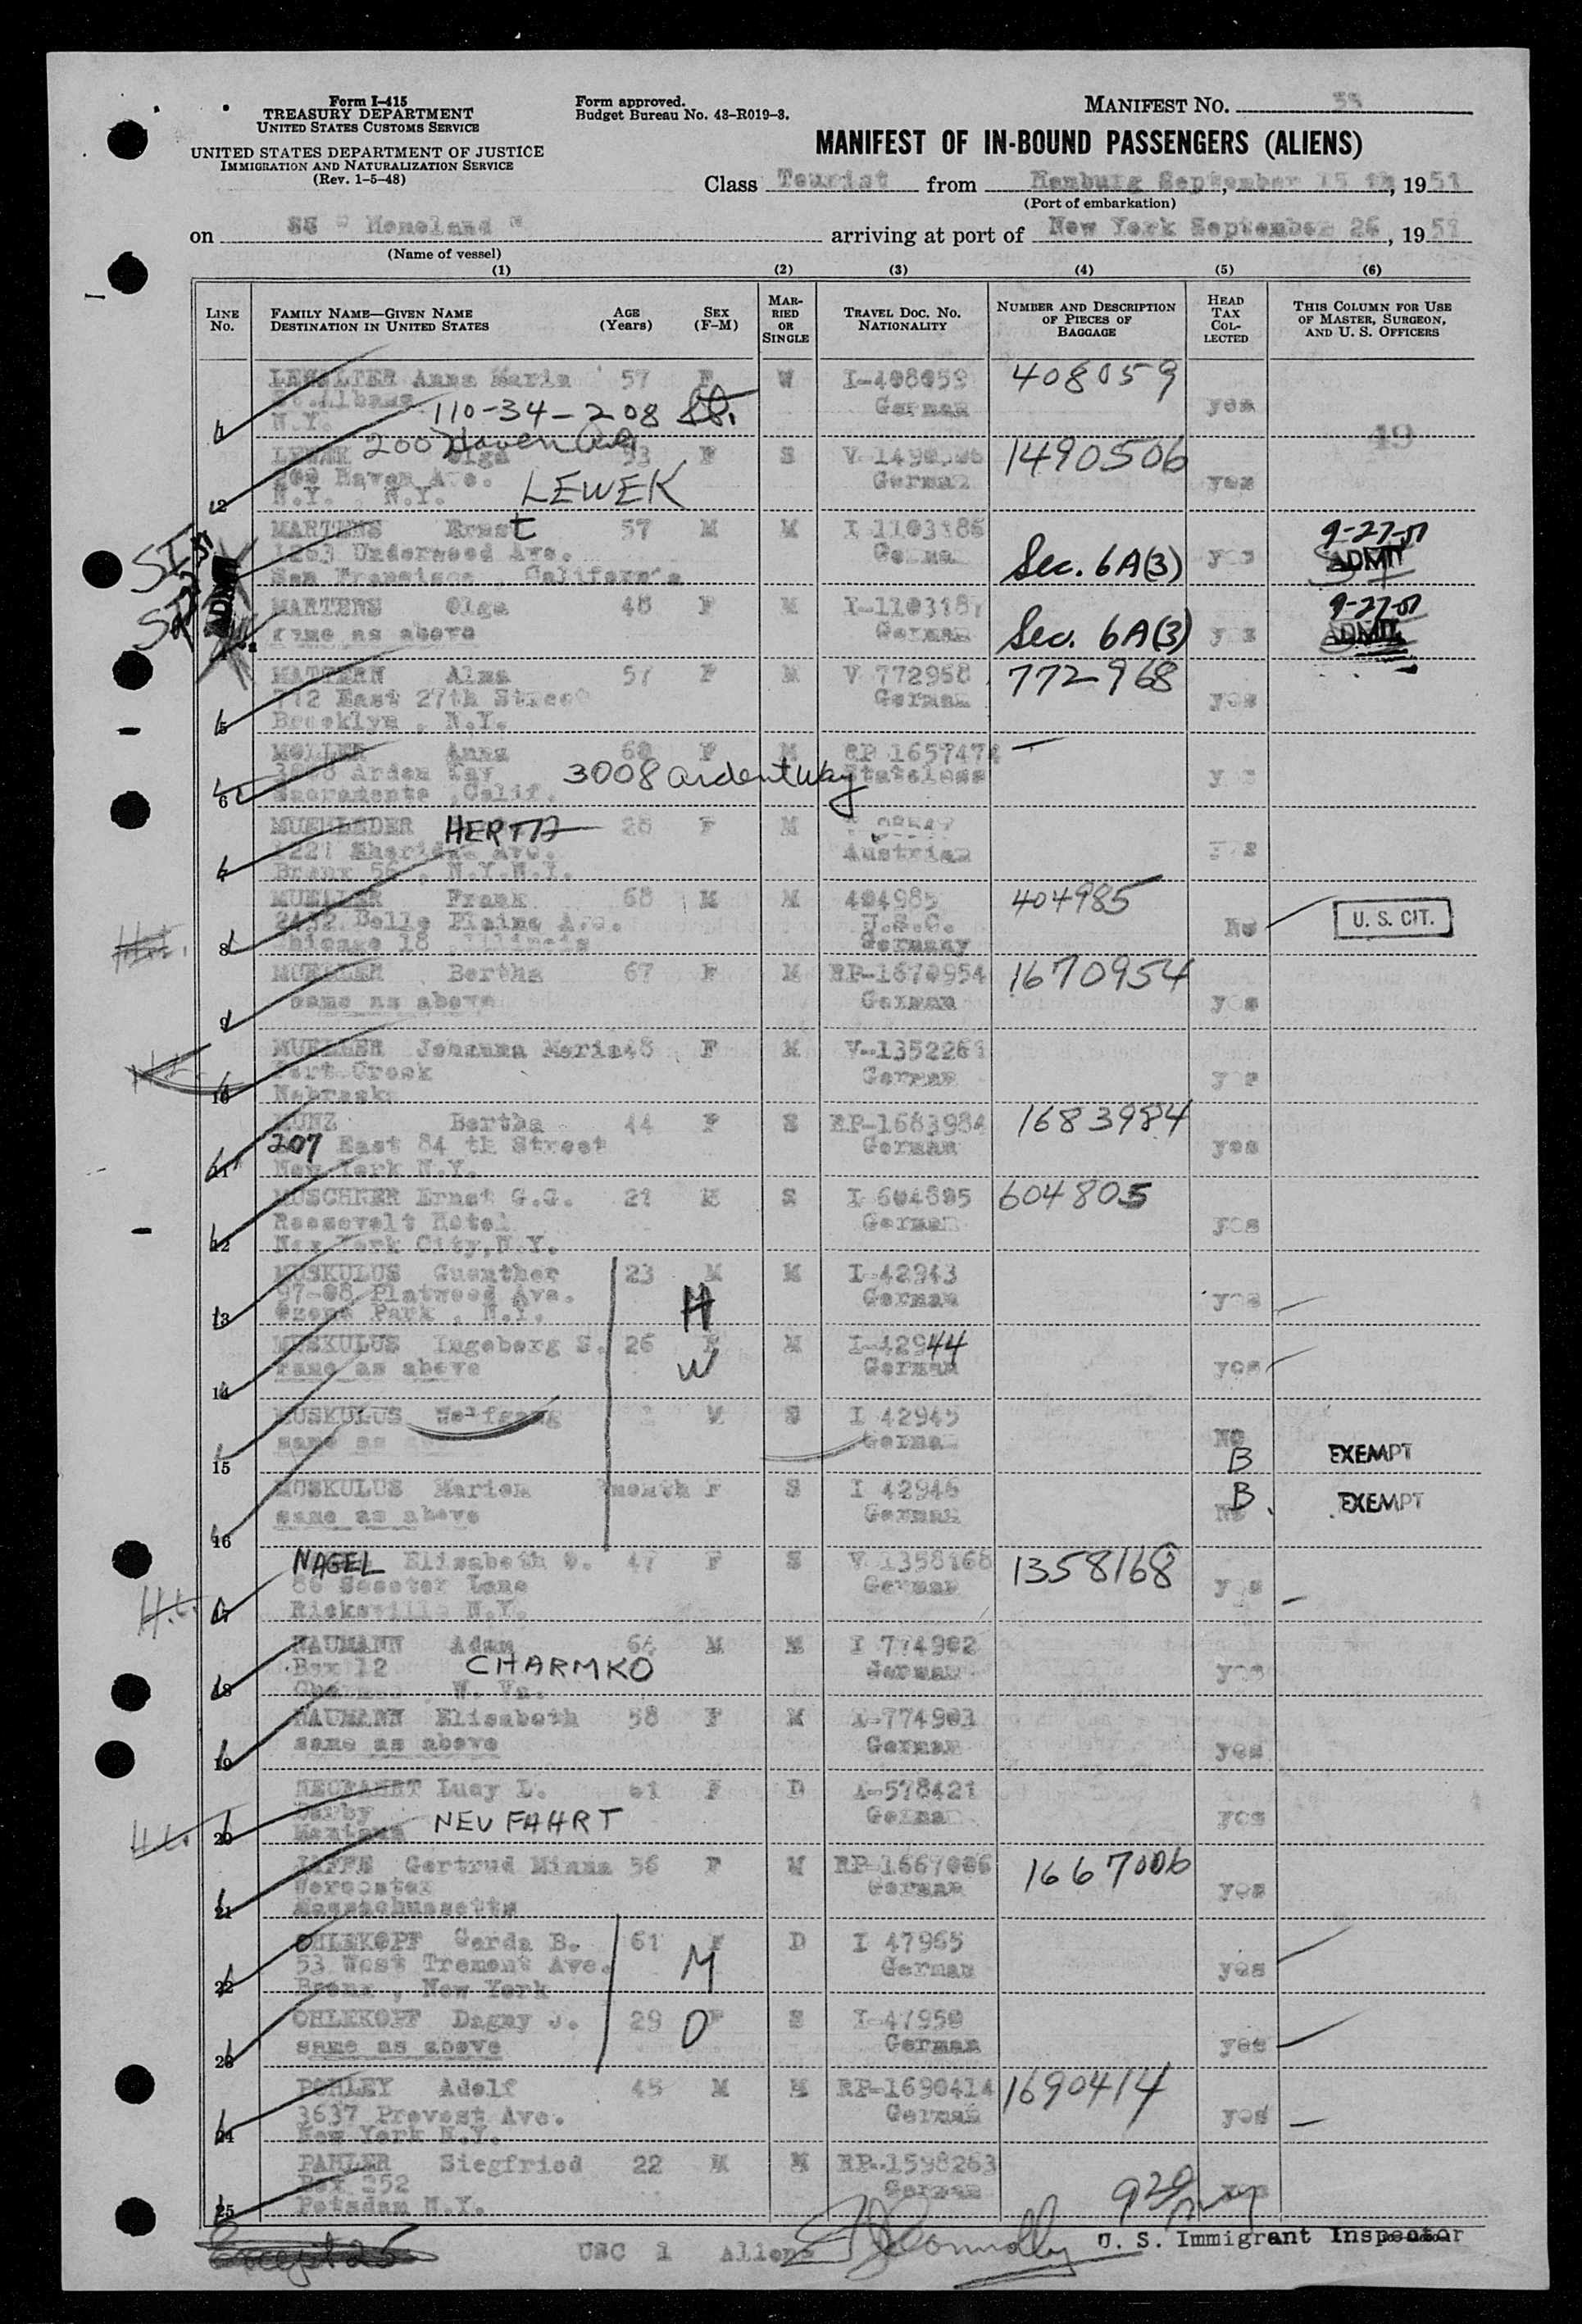 Form I-415
TREASURY DEPARTMENT
UNITED STATES CUSTOMS SERVICE
UNITED STATES DEPARTMENT OF JUSTICE
IMMIGRATION AND NATURALIZATION SERVICE
(Rev. 1-5-48)
Form approved.
Budget Bureau No. 43-R019-3.
MANIFEST NO. 55
MANIFEST OF IN-BOUND PASSENGERS (ALIENS)
Class Tourist from Hamburg September 15 th, 1951
(Port of embarkation)
on SS " Homeland " arriving at port of New York September 26, 1951
(Name of vessel)
(1) (2) (3) (4) (5) (6)
LINE No. FAMILY NAME—GIVEN NAME DESTINATION IN UNITED STATES AGE (Years) SEX (F-M) MARRIED OR SINGLE TRAVEL DOC. NO. NATIONALITY NUMBER AND DESCRIPTION OF PIECES OF BAGGAGE HEAD TAX COLLECTED THIS COLUMN FOR USE OF MASTER, SURGEON, AND U. S. OFFICERS
Anna Maria 57 F W I-408059 408059
St. Albans German yes
1 N.Y. 110-34-208 St.
49
200 Haven Ave
Olga 53 F S V 1490506 1490506
200 Haven Ave. German yes
2 N.Y. , N.Y. LEWEK
MARTENS Ernst 57 M M I 1103186
1263 Underwood Ave. Sec. 6A(3) yes 9-27-51 ADMIT
San Francisco , California
SI ADMIT
MARTENS Olga 48 F M I-1103187
same as above German Sec. 6A(3) yes 9-27-51 ADMIT
MATTERN Alma 57 F M V 772968 772968
712 East 27th Street German yes
5 Brooklyn , N.Y.
MOLLER Anna 60 F M RP 1657474 —
Arden Way 3008 ardent way Stateless yes
6 Sacramento , Calif.
HERTA F M
1221 Sheridan Ave. Austrian yes
7 Bronx 56 , N.Y.N.Y.
MUELLER Frank 68 M M 404985 404985
2432 Belle Plaine Ave. U.S.C. No U. S. CIT.
8 Chicago 18 Illinois Germany
MUELLER Bertha 67 F M RP-1670954 1670954
same as above German yes
9
MUELLER Johanna Maria 48 F M V-1352261
German yes
10 Nebraska
MUNZ Bertha 44 F S RP-1683984 1683984
207 East 84 th Street German yes
11 New York N.Y.
MUSCHNER Ernst G.G. 21 M S I 604805 604805
Roosevelt Hotel German yes
12 New York City, N.Y.
MUSKULUS Guenther 23 M M I-42943
97-08 Platwood Ave. H German yes
13 Ozone Park , N.Y.
MUSKULUS Ingeborg S. 26 F M I-42944
same as above W German yes
14
MUSKULUS Wolfgang M S I 42945
same as German No
15 B EXEMPT
MUSKULUS Marion month F S I 42946 B EXEMPT
same as above German No
16
NAGEL Elisabeth O. 47 F S V 1358168 1358168
German yes
17 Hicksville N.Y.
NAUMANN Adam 64 M M I 774902
Box 12 CHARMKO German yes
18 W. Va.
NAUMANN Elisabeth 58 F M I-774903
same as above German yes
19
NEUFAHRT Lucy L. 61 F D I-578421
Darby NEUFAHRT German yes
20 Montana
JAFFE Gertrud Minna 56 F RP 1667006 1667006
Worcester German yes
21 Massachussetts
OHLEKOPF Gerda B. 61 F D I 47965
53 West Tremont Ave. M German yes
22 Bronx , New York
OHLEKOPF Dagny J. 29 F S I-47950
same as above D German yes
23
POHLEY Adolf 45 M M RP-1690414 1690414
3637 Provost Ave. German yes
24 New York N.Y.
PAHLER Siegfried 22 M M RP-1598263
Box 252 German yes
25 Potsdam N.Y.
USC 1 Aliens Connolly U. S. Immigrant Inspector